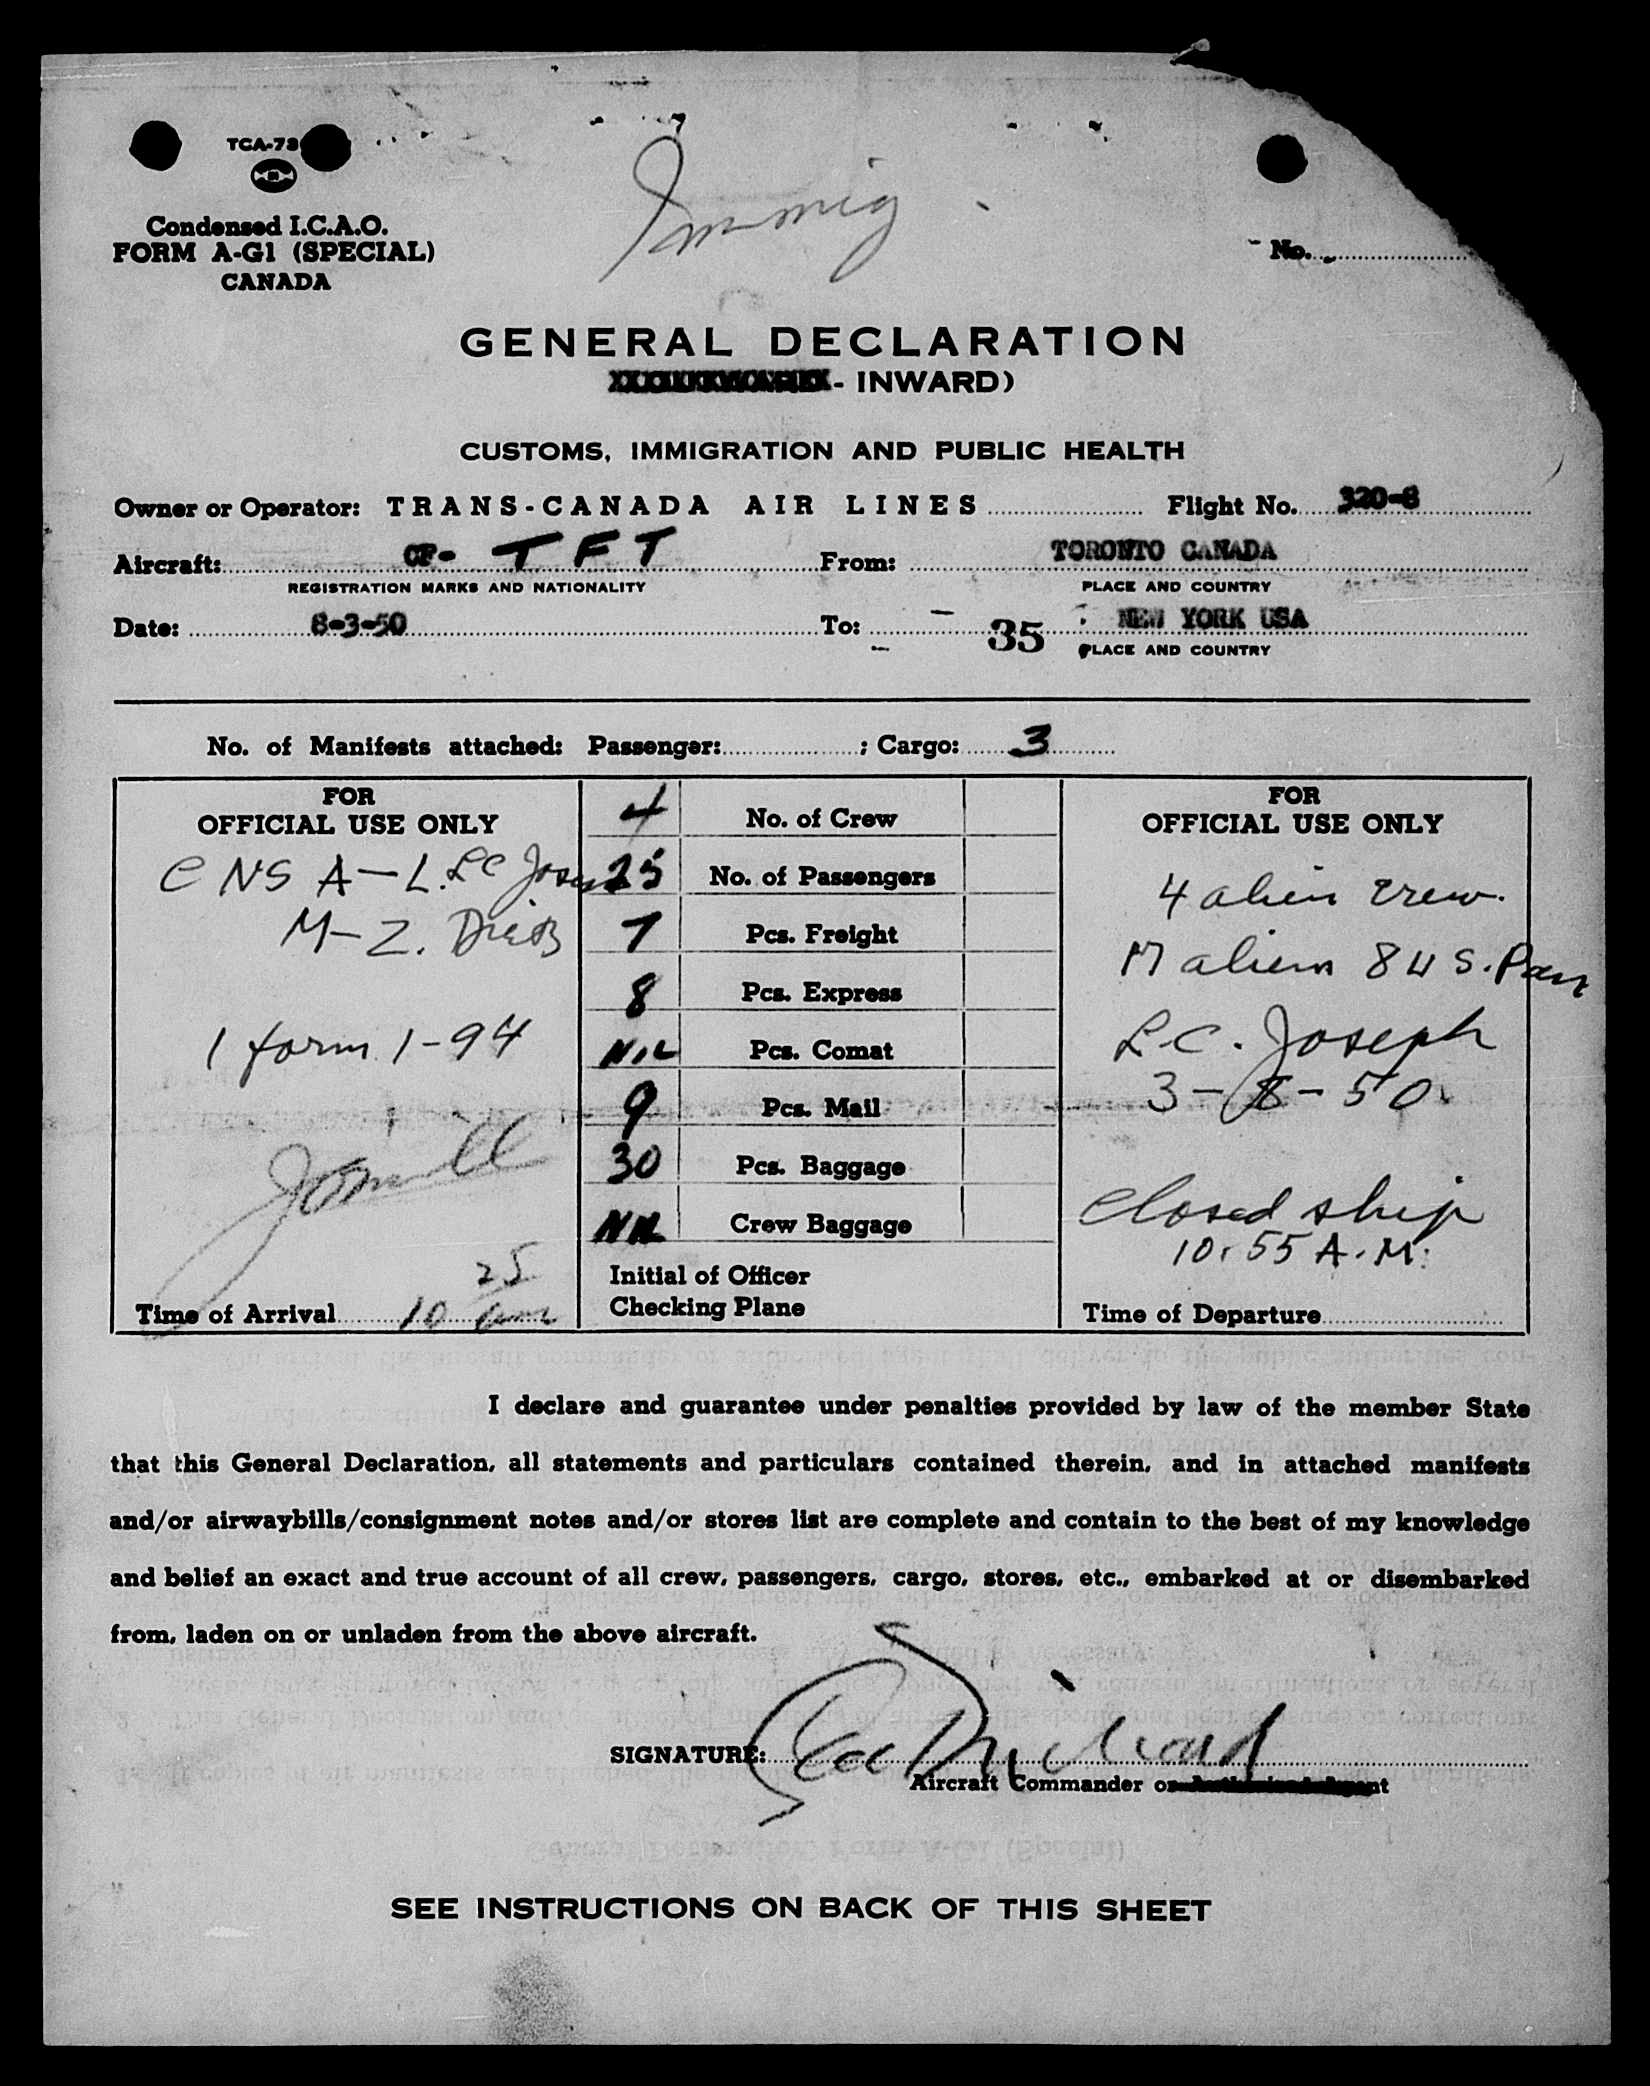 TCA-73
Condensed I.C.A.O.
FORM A-G1 (SPECIAL)
CANADA
Immig.
No.
GENERAL DECLARATION
- INWARD)
CUSTOMS, IMMIGRATION AND PUBLIC HEALTH
Owner or Operator: TRANS-CANADA AIR LINES Flight No. 320-8
Aircraft: CF- TFT From: TORONTO CANADA
REGISTRATION MARKS AND NATIONALITY PLACE AND COUNTRY
Date: 8-3-50 To: 35 NEW YORK USA
PLACE AND COUNTRY
No. of Manifests attached: Passenger: ; Cargo: 3
FOR
OFFICIAL USE ONLY
C NS A-L. LC Joseph
M-Z.
1 form 1-94
25
Time of Arrival 10 am
4 No. of Crew
25 No. of Passengers
7 Pcs. Freight
8 Pcs. Express
NIL Pcs. Comat
9 Pcs. Mail
30 Pcs. Baggage
NIL Crew Baggage
Initial of Officer
Checking Plane
FOR
OFFICIAL USE ONLY
4 alien crew.
17 aliens 8 US. Pass
L.C. Joseph
3-8-50.
Closed ship
10:55 A.M.
Time of Departure
I declare and guarantee under penalties provided by law of the member State
that this General Declaration, all statements and particulars contained therein, and in attached manifests
and/or airwaybills/consignment notes and/or stores list are complete and contain to the best of my knowledge
and belief an exact and true account of all crew, passengers, cargo, stores, etc., embarked at or disembarked
from, laden on or unladen from the above aircraft.
SIGNATURE:
Aircraft Commander or
SEE INSTRUCTIONS ON BACK OF THIS SHEET